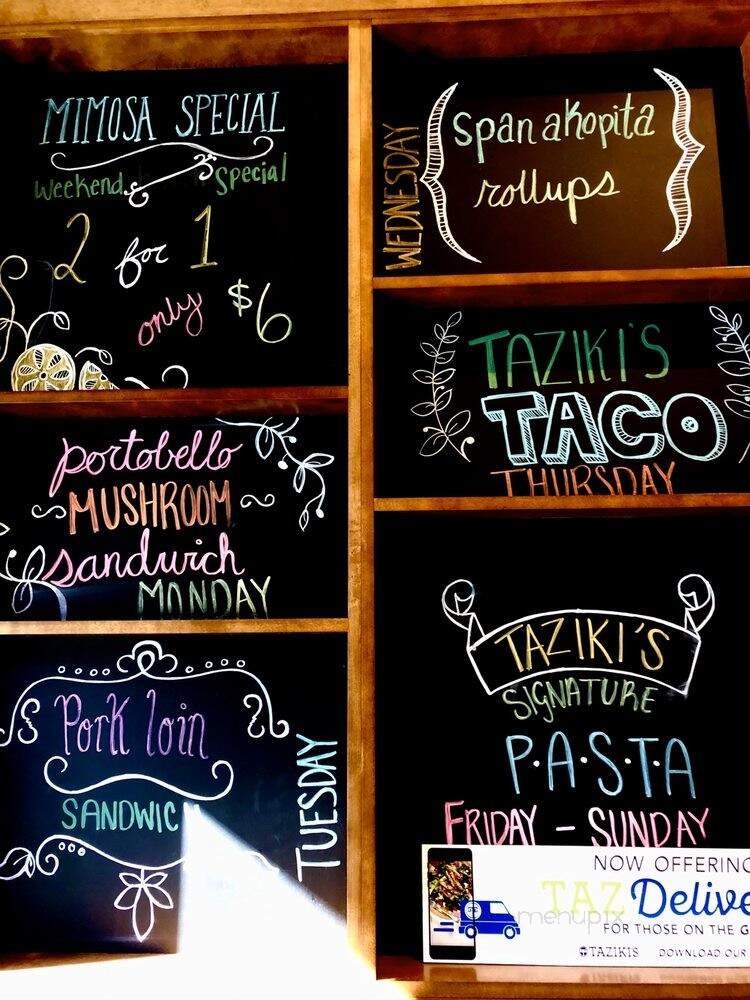 MIMOSA SPECIAL
Weekend Special
2 for 1
only $6
portobello
MUSHROOM
sandwich
MONDAY
Pork loin
SANDWICH
TUESDAY
WEDNESDAY
spanakopita
rollups
TAZIKI'S
TACO
THURSDAY
TAZIKI'S
SIGNATURE
P·A·S·T·A
FRIDAY - SUNDAY
NOW OFFERING
TAZ Delive
menupix
FOR THOSE ON THE G
TAZIKIS DOWNLOAD OUR